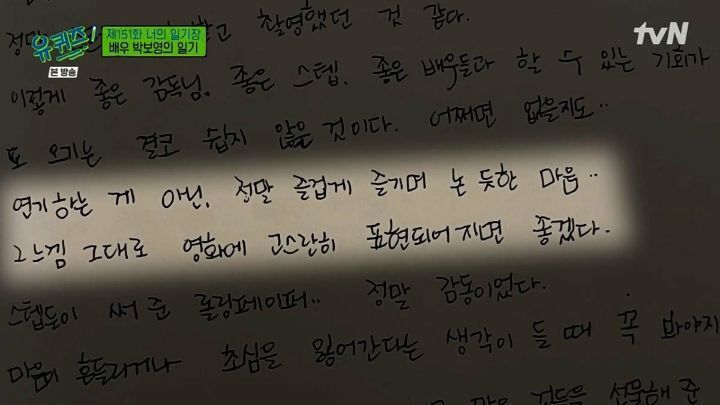 유퀴즈!
본 방송
제151화 너의 일기장
배우 박보영의 일기
tvN
정말 받고 촬영했던 것 같다.
이렇게 좋은 감독님, 좋은 스텝, 좋은 배우들과 할 수 있는 기회가
또 오기는 결코 쉽지 않을 것이다. 어쩌면 없을지도..
연기하는 게 아닌, 정말 즐겁게 즐기며 논 듯한 마음..
그 느낌 그대로 영화에 고스란히 표현되어지면 좋겠다.
스텝들이 써 준 롤링페이퍼.. 정말 감동이었다.
마음이 흔들리거나 초심을 잃어간다는 생각이 들 때 꼭 봐야지
많은 것들을 선물해 준